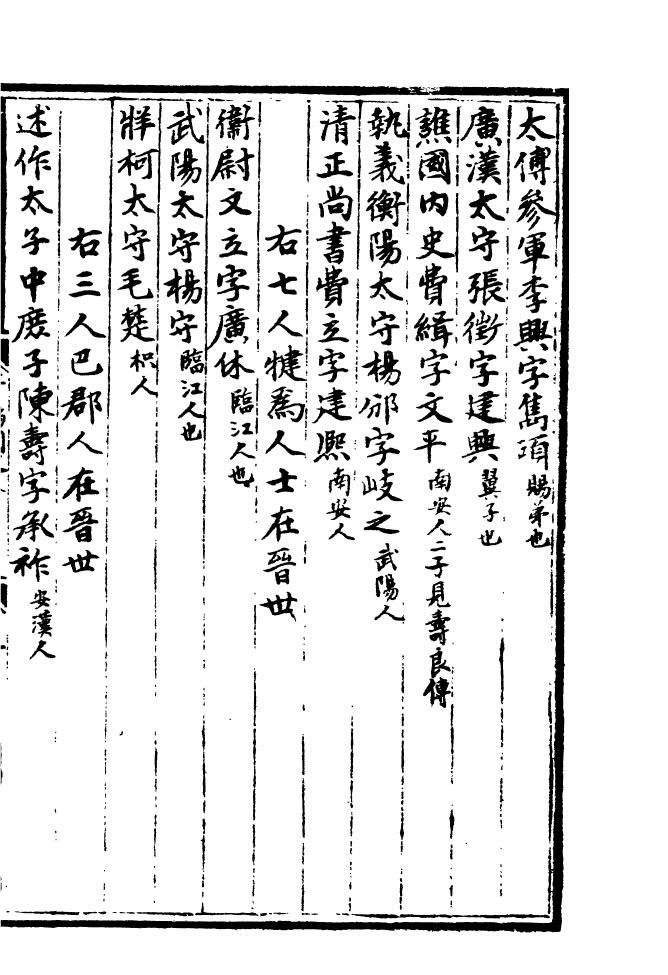 太傅參軍李興字雋項賜弟也
廣漢太守張徵字建興翼子也
譙國內史費緝字文平南安人二子見壽良傳
執義衡陽太守楊邠字岐之武陽人
清正尚書費立字建熙南安人
右七人犍爲人士在晉世
衞尉文立字廣休臨江人也
武陽太守楊宗臨江人也
牂柯太守毛楚枳人
右三人巴郡人在晉世
述作太子中庶子陳壽字承祚安漢人